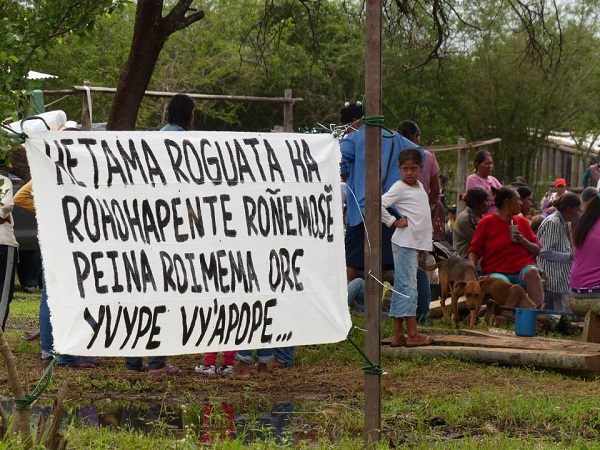 HETAMA ROGUATA HA
ROHOHAPENTE ROÑEMOSẼ
PEINA ROIMEMA ORE
YVYPE VY'APOPE...